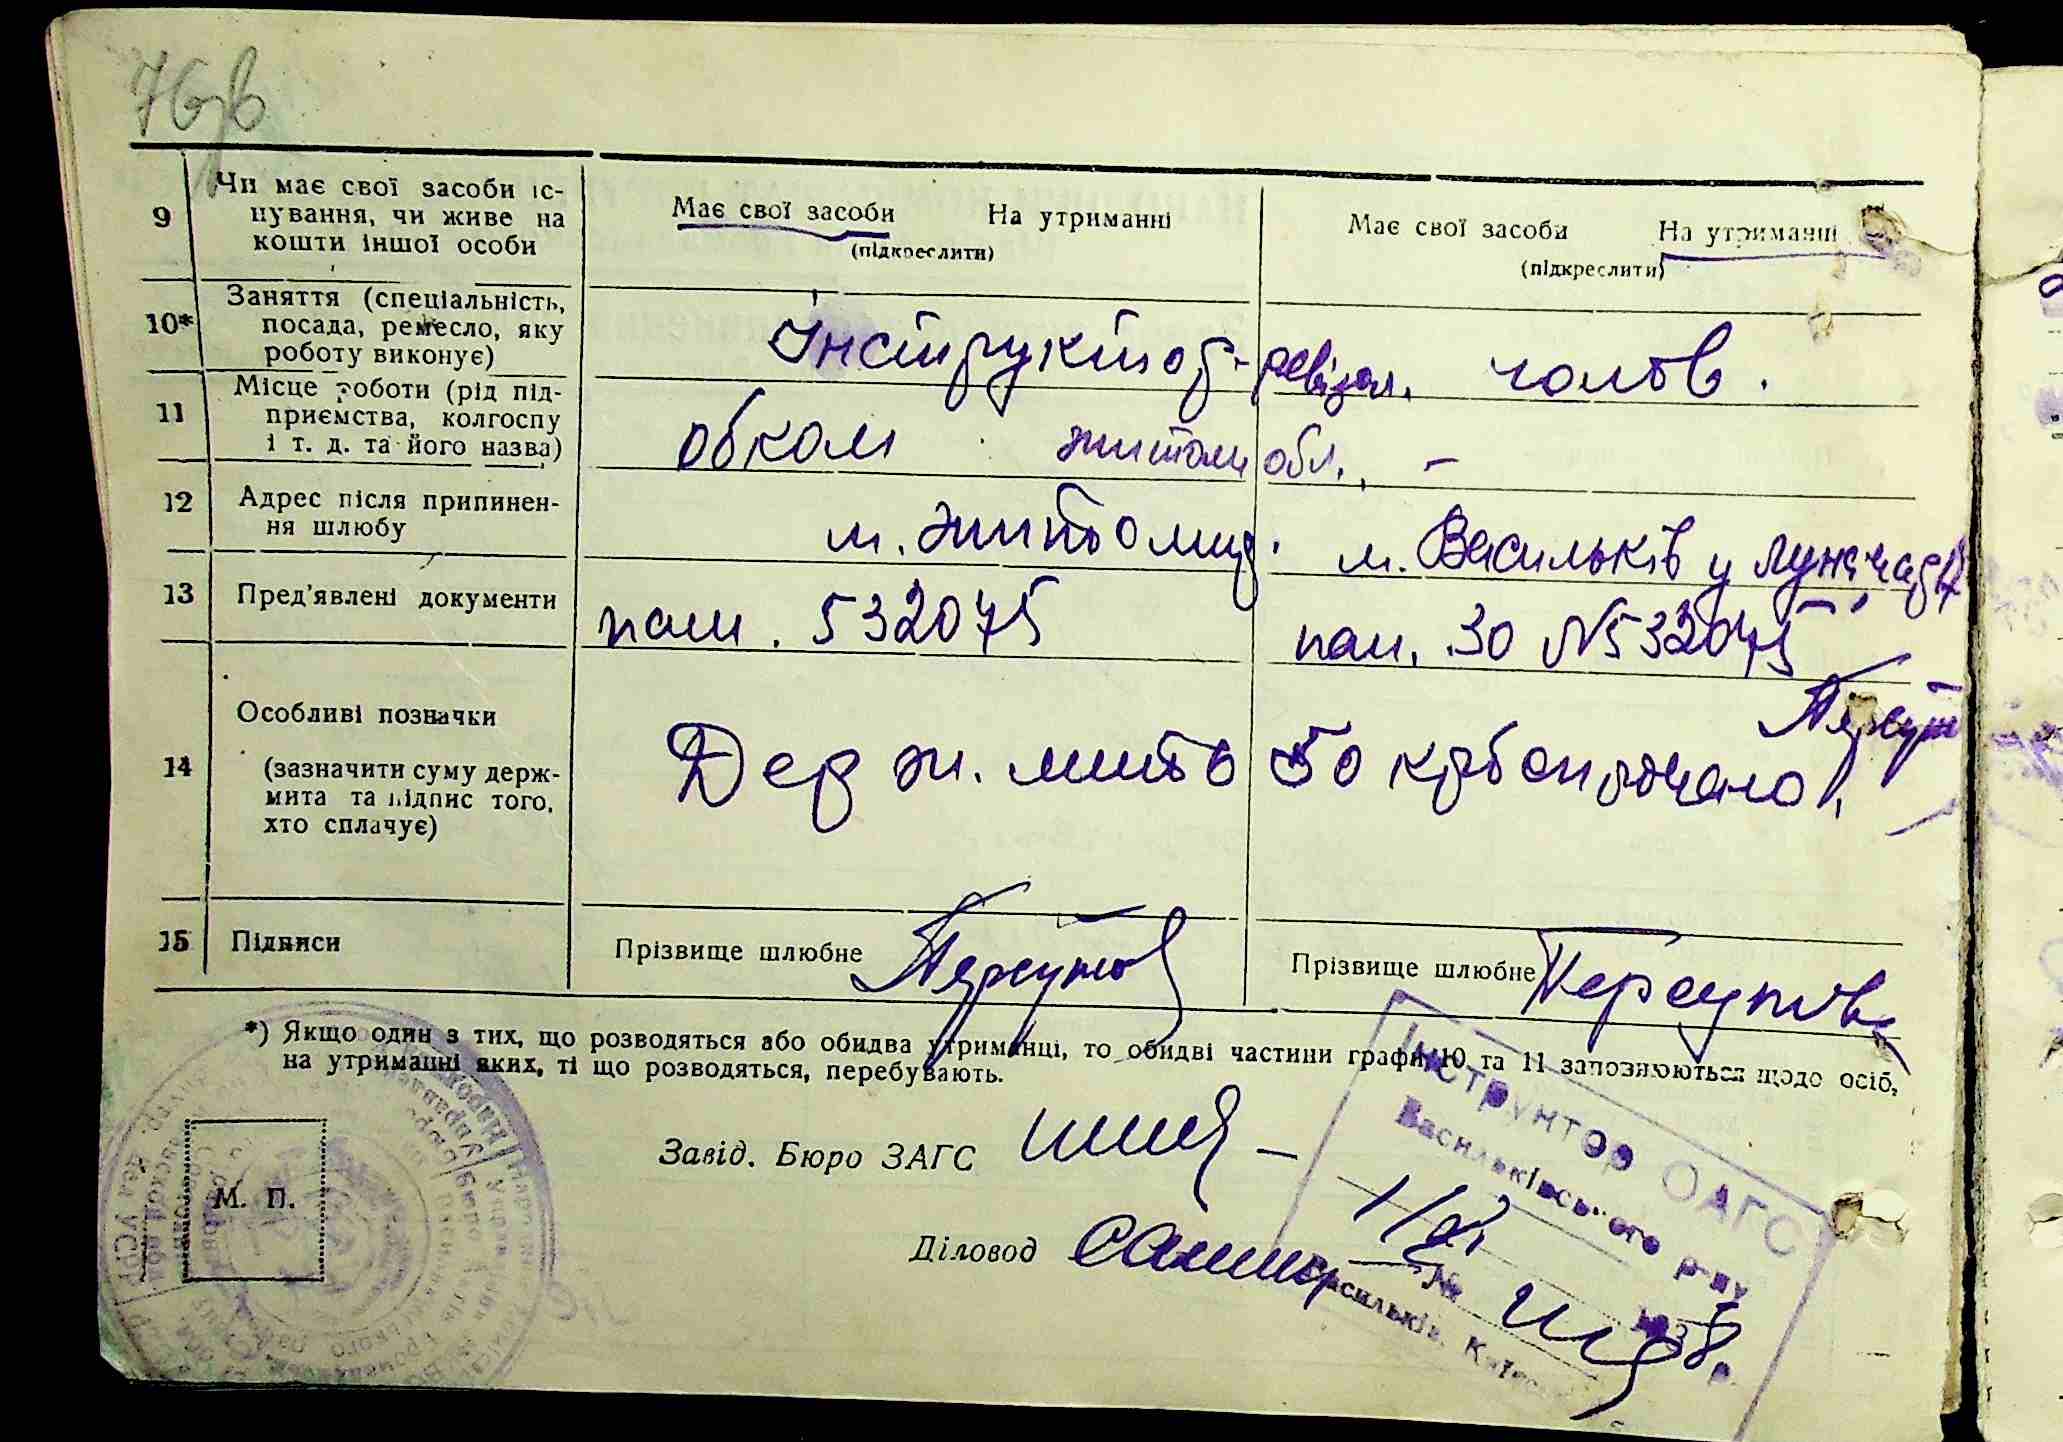 76зв
9 Чи має свої засоби іс-
нування, чи живе на
кошти іншої особи
Має свої засоби На утриманні
(підкреслити)
Має свої засоби На утриманні
(підкреслити)
10* Заняття (спеціальність,
посада, ремесло, яку
роботу виконує)
Інструктор-ревізол. чолов.
11 Місце роботи (рід під-
приємства, колгоспу
і т. д. та його назва)
обком житом обл., –
12 Адрес після припинен-
ня шлюбу
м. Житомир.
м. Васильків у Луначар
13 Пред'явлені документи
пасп. 532075
пасп. 30 № 532075
14 Особливі позначки
(зазначити суму держ-
мита та підпис того,
хто сплачує)
Держ. мито 50 крб
15 Підписи
Прізвище шлюбне
Прізвище шлюбне Персутова
*) Якщо один з тих, що розводяться або обидва утриманці, то обидві частини графи 10 та 11 заповнюються щодо осіб,
на утриманні яких, ті що розводяться, перебувають.
Завід. Бюро ЗАГС
М. П.
Діловод
Інструктор ОАГС
Васильківського р-ну
№ 1938 р.
м. Васильків,